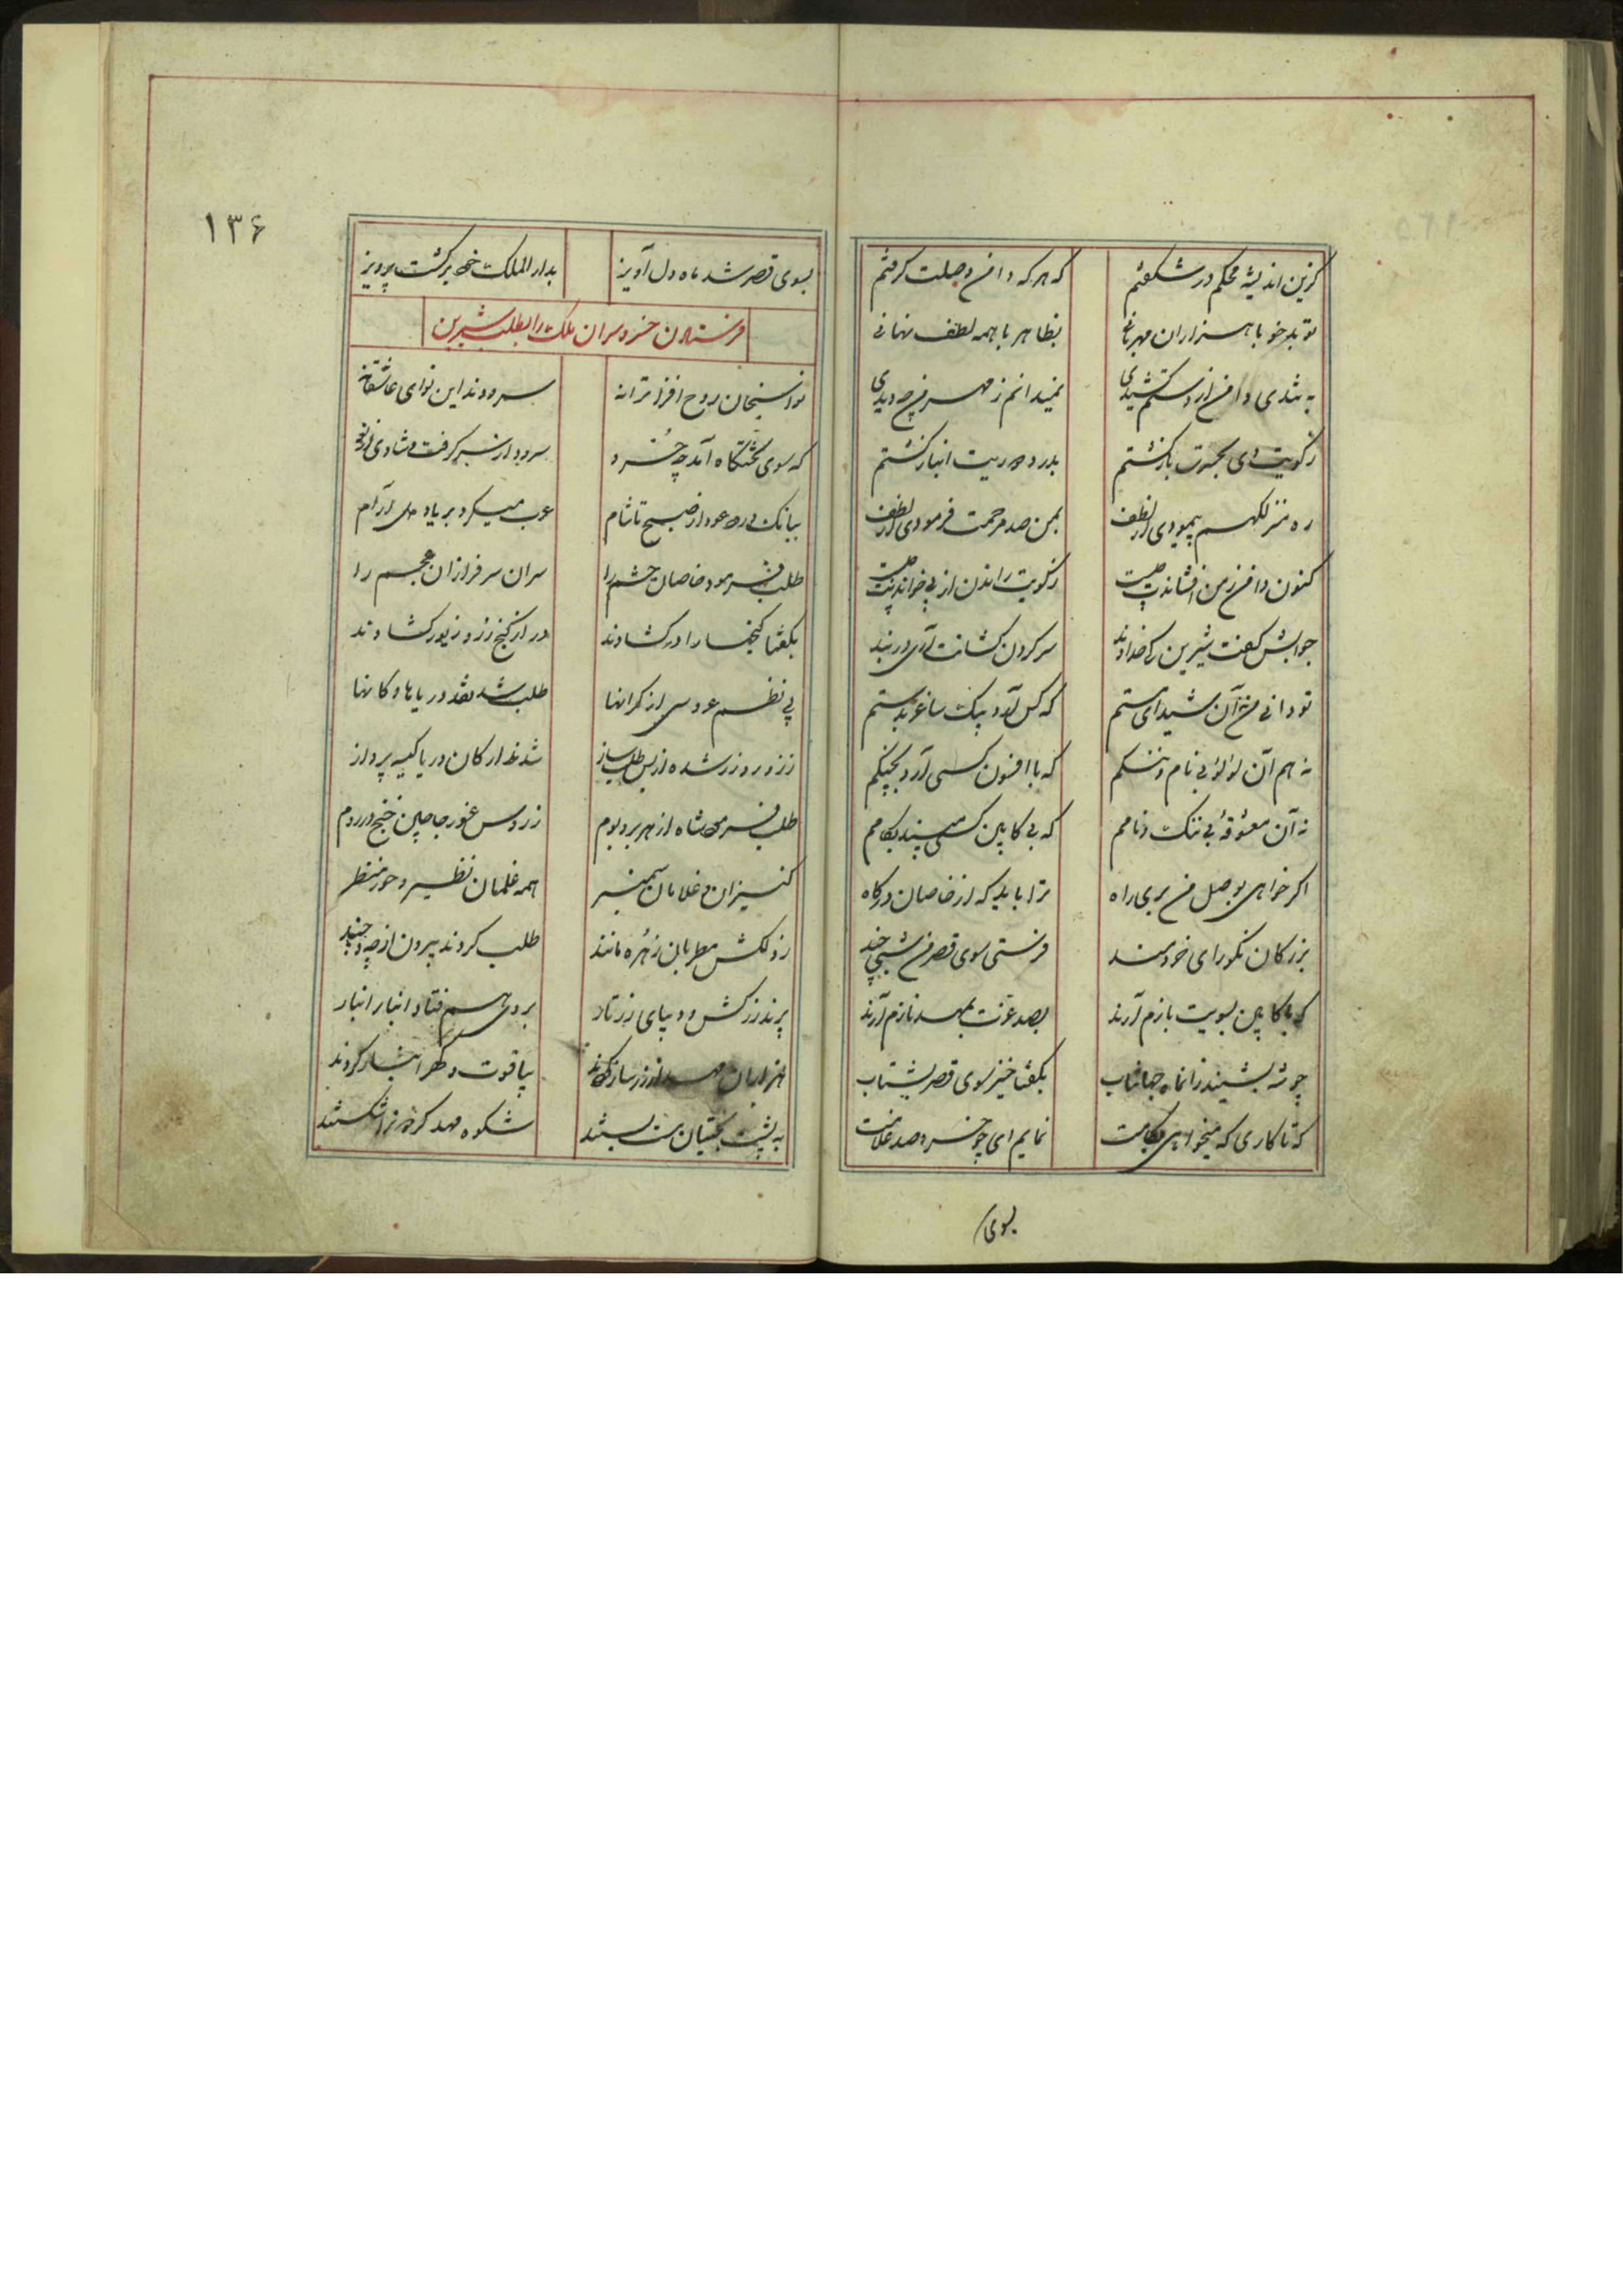 کزین اندیشه محکم در شکفتم که هر که دامن وصلت کرفتم
تو بدخو با هزاران مهربانی بظاهر با همه لطف نهانی
به تندی دامن از دستم کشیدی نمیدانم ز مهر من چه دیدی
ز کویت بازکشتم بدرد دوریت انباز کشتم
ره منزلکهم پیمودی از لطف بمن صد مرحمت فرمودی از لطف
کنون دامن ز من افشاندنت چیست ز کویت راندن از پی خواندنت چیست
جوابش کفت شیرین کای خداوند سر کردن کشانت آری در بند
تو دانی من آن شیدای مستم که کس آرد بیک ساغر بدستم
نه هم آن لولو بی نام و ننکم که با افسون کسی آرد بچنکم
نه آن معشوقه بی ننک و نامم که بی کابین کسی بکامم
اکر خواهی بوصل من بری راه ترا باید که از خاصان درکاه
بزرکان نکورای خردمند فرستی سوی قصر من شبی چند
که با کابین بسویت بازم آرند بصد عزت بمهد نازم آرند
چو شه بشنید زانماه جهانتاب بکفتا خیز سوی قصر بشتاب
که تا کاری که میخواهی نمایم ای چو خسرو صد غلامت
بسوی
۱۳۶
بسوی قصر شد ماه دل آویز بدار الملک خود برکشت پرویز
فرستادن خسرو سران ملک را بطلب شیرین
نوا سنجان روح افزا ترانه سرودند این نوای عاشقانه
که سوی تختکاه آمد چو خسرو سرود از سر کرفت و شادی از نو
ببانک عود از صبح تا شام میکرد بر یاد دلارام
طلب فرمود خاصان حشم را سران سرفرازان عجم را
بکفتا کنجها را در کشادند در از کنج زر و زیور کشادند
پی نظم عروسی از کرانها طلب شد نقد دریاها و کانها
زر و زر شده از بس طلب ساز شدند ارکان دریا کیسه پرداز
طلب شاه از هر بر و بوم ز روس و روم
کنیزان و غلامان سمنبر همه غلمان نظیر و حور منظر
ز دلکش مطربان زهره مانند طلب کردند بیرون از چه و چند
پرند زرکش و دیبای زرتار بروی هم فتاد انبار انبار
هزاران مهد از زر ساز کردند بیاقوت و کهر انباز کردند
به پشت بختیان مست بستند شکوه مهد کردون را شکستند